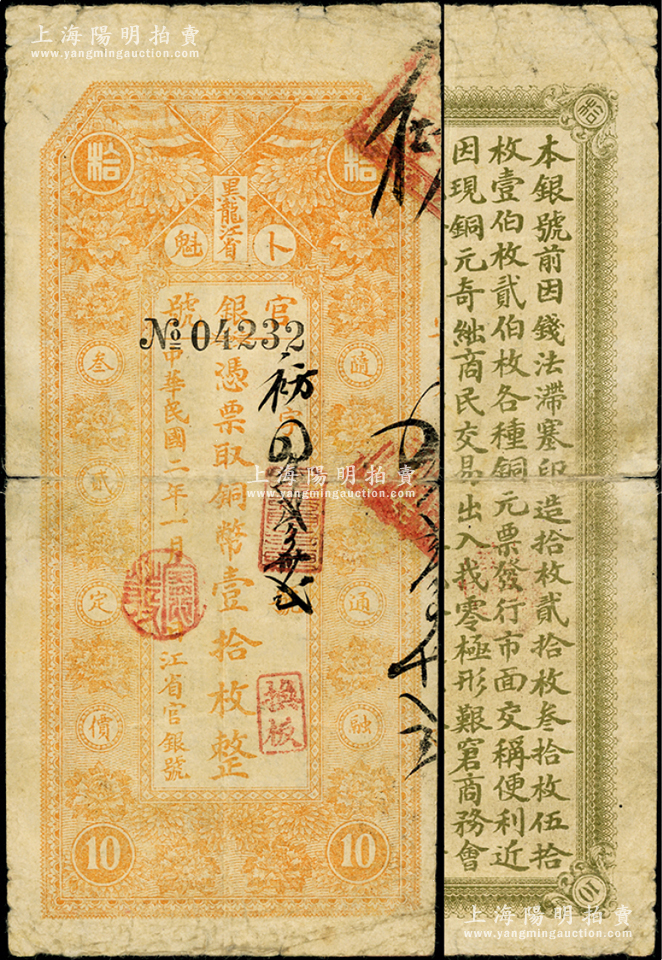 上海陽明拍賣
www.yangmingauction.com
拾
拾
黑龍江省
卜
魁
官
銀
號
№ 04232
憑票取銅幣壹拾枚整
中華民國二年一月
江省官銀號
隨
通
融
叁
貳
定
價
換版
10
10
上海陽明拍賣
www.yangmingauction.com
本銀號前因錢法滯塞印造拾枚貳拾枚叁拾枚伍拾
枚壹伯枚貳伯枚各種銅元票發行市面交稱便利近
因現銅元奇絀商民交易出入找零極形艱窘商務會
10
上海陽明拍賣
www.yangmingauction.com